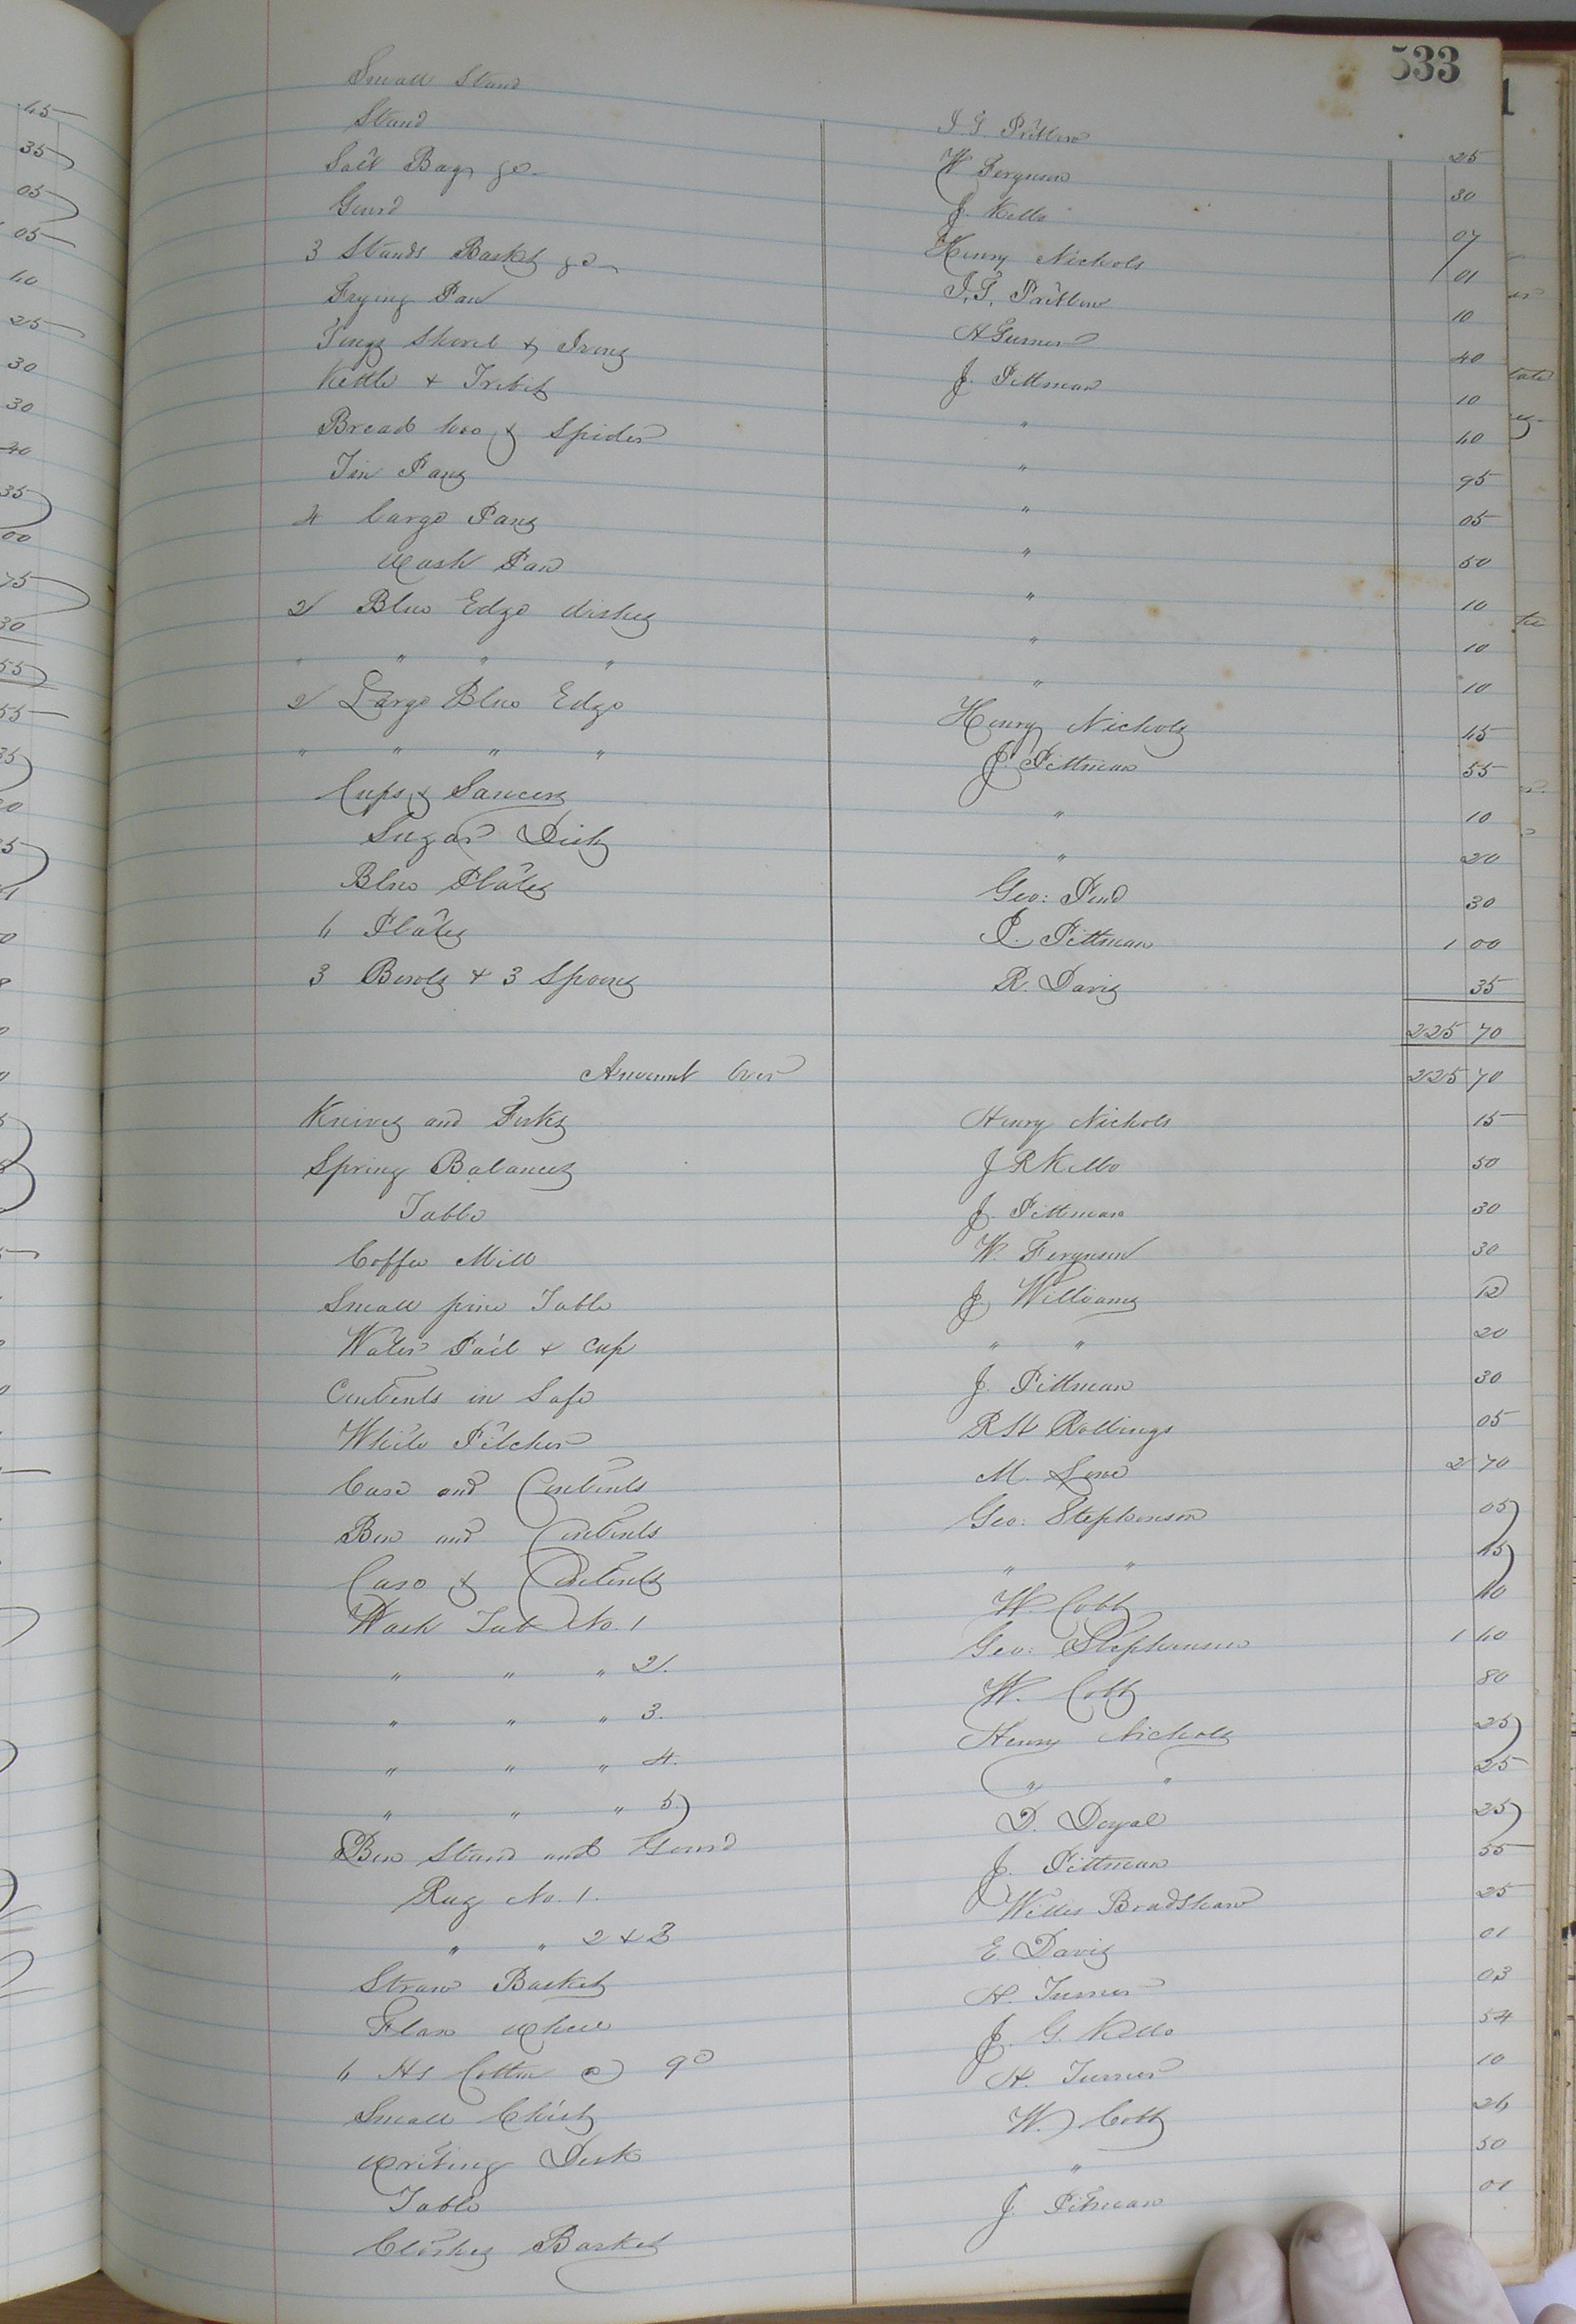 533
Small Stand I G Pretlow 25
Stand W Ferguson 30
Salt Bags &c J. Kello 07
Gourd Henry Nichols 01
3 Stands Basket &c J. G. Pretlow 10
Frying Pan H Turner 40
Tongs Shovel & Irons J. Pittman 10
Kettle & Trivets " 40
Bread hoo & Spider " 95
Tin Pans " 05
4 Large Pans " 50
Wash Pan " 10
2 Blue Edge dishes " 10
" " " " " 10
2 Large Blue Edge Henry Nichols 45
" " " " J. Pittman 55
Cups & Saucers " 10
Sugar Dish " 20
Blue Plates Geo: 30
6 Plates J. Pittman 1 00
3 Bowls & 3 Spoons R. Davis 35
225 70
Amount Over 225 70
Knives and Forks Henry Nichols 15
Spring Balances J R Kello 50
Table J. Pittman 30
Coffee Mill W. Ferguson 30
Small pine Table J. Williams 12
Water Pail & cup " " 20
Contents in Safe J. Pittman 30
White Pitcher R H Rollings 05
Case and Contents M. Love 2 70
Box and Contents Geo: Stephenson 05
Case & Contents " " 15
Wash Tub No. 1 W. Cobb 40
" " " 2. Geo: Stephenson 1 40
" " " 3. W. Cobb 80
" " " 4. Henry Nichols 25
" " " 5. " " 25
Box Stand and Gourd D. Doyal 25
Rug No. 1. J. Pittman 55
" " 2 & 3 Willis Bradshaw 25
Straw Basket E Davis 01
Flax Wheel H. Turner 03
6 lbs Cotton @ 9c J. G. Kello 54
Small Chest H. Turner 10
Writing Desk W. Cobb 26
Table " 50
Clothes Basket J. Pitman 01